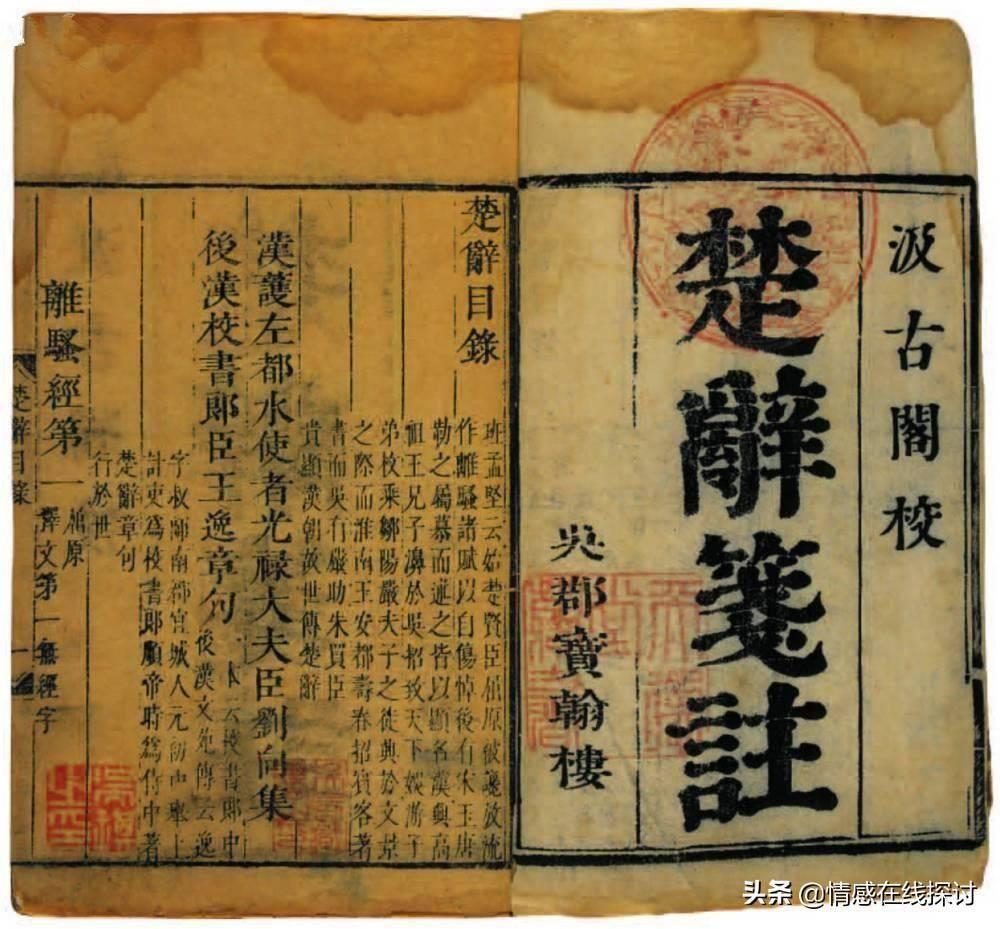 汲古閣校
楚辭箋註
吳郡寶翰樓
楚辭目錄
班孟堅云始楚賢臣屈原被讒放流
作離騷諸賦以自傷悼後有宋玉唐
勒之屬慕而述之皆以顯名漢興高
祖王兄子濞於吳招致天下娛游子
弟枚乘鄒陽嚴夫子之徒興於文景
之際而淮南王安都壽春招賓客著
書而吳有嚴助朱買臣
貴顯漢朝故世傳楚辭
漢護左都水使者光祿大夫臣劉向集
後漢校書郎臣王逸章句
後漢文苑傳云逸
字叔師南郡宜城人元初中舉上
計吏為校書郎順帝時為侍中著
楚辭章句
行於世
離騷經第一
屈原
釋文第一無經字
楚辭目錄
一
头条 @情感在线探讨